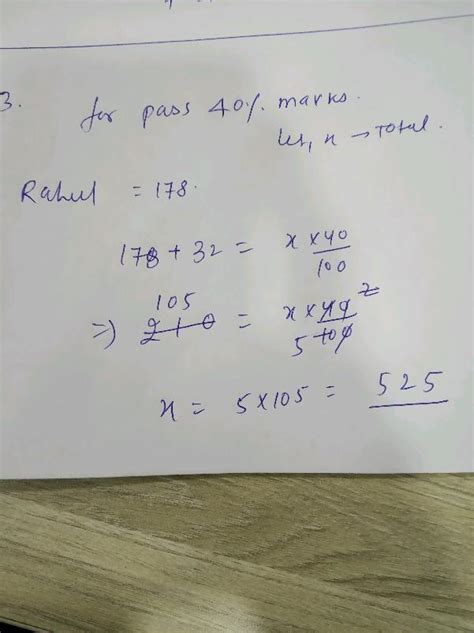 3. for pass 40% marks.
let, x → Total.
Rahul = 178.
178 + 32 = x × 40 / 100
105
=> 210 = x × 40 2 / 5 100
x = 5 × 105 = 525